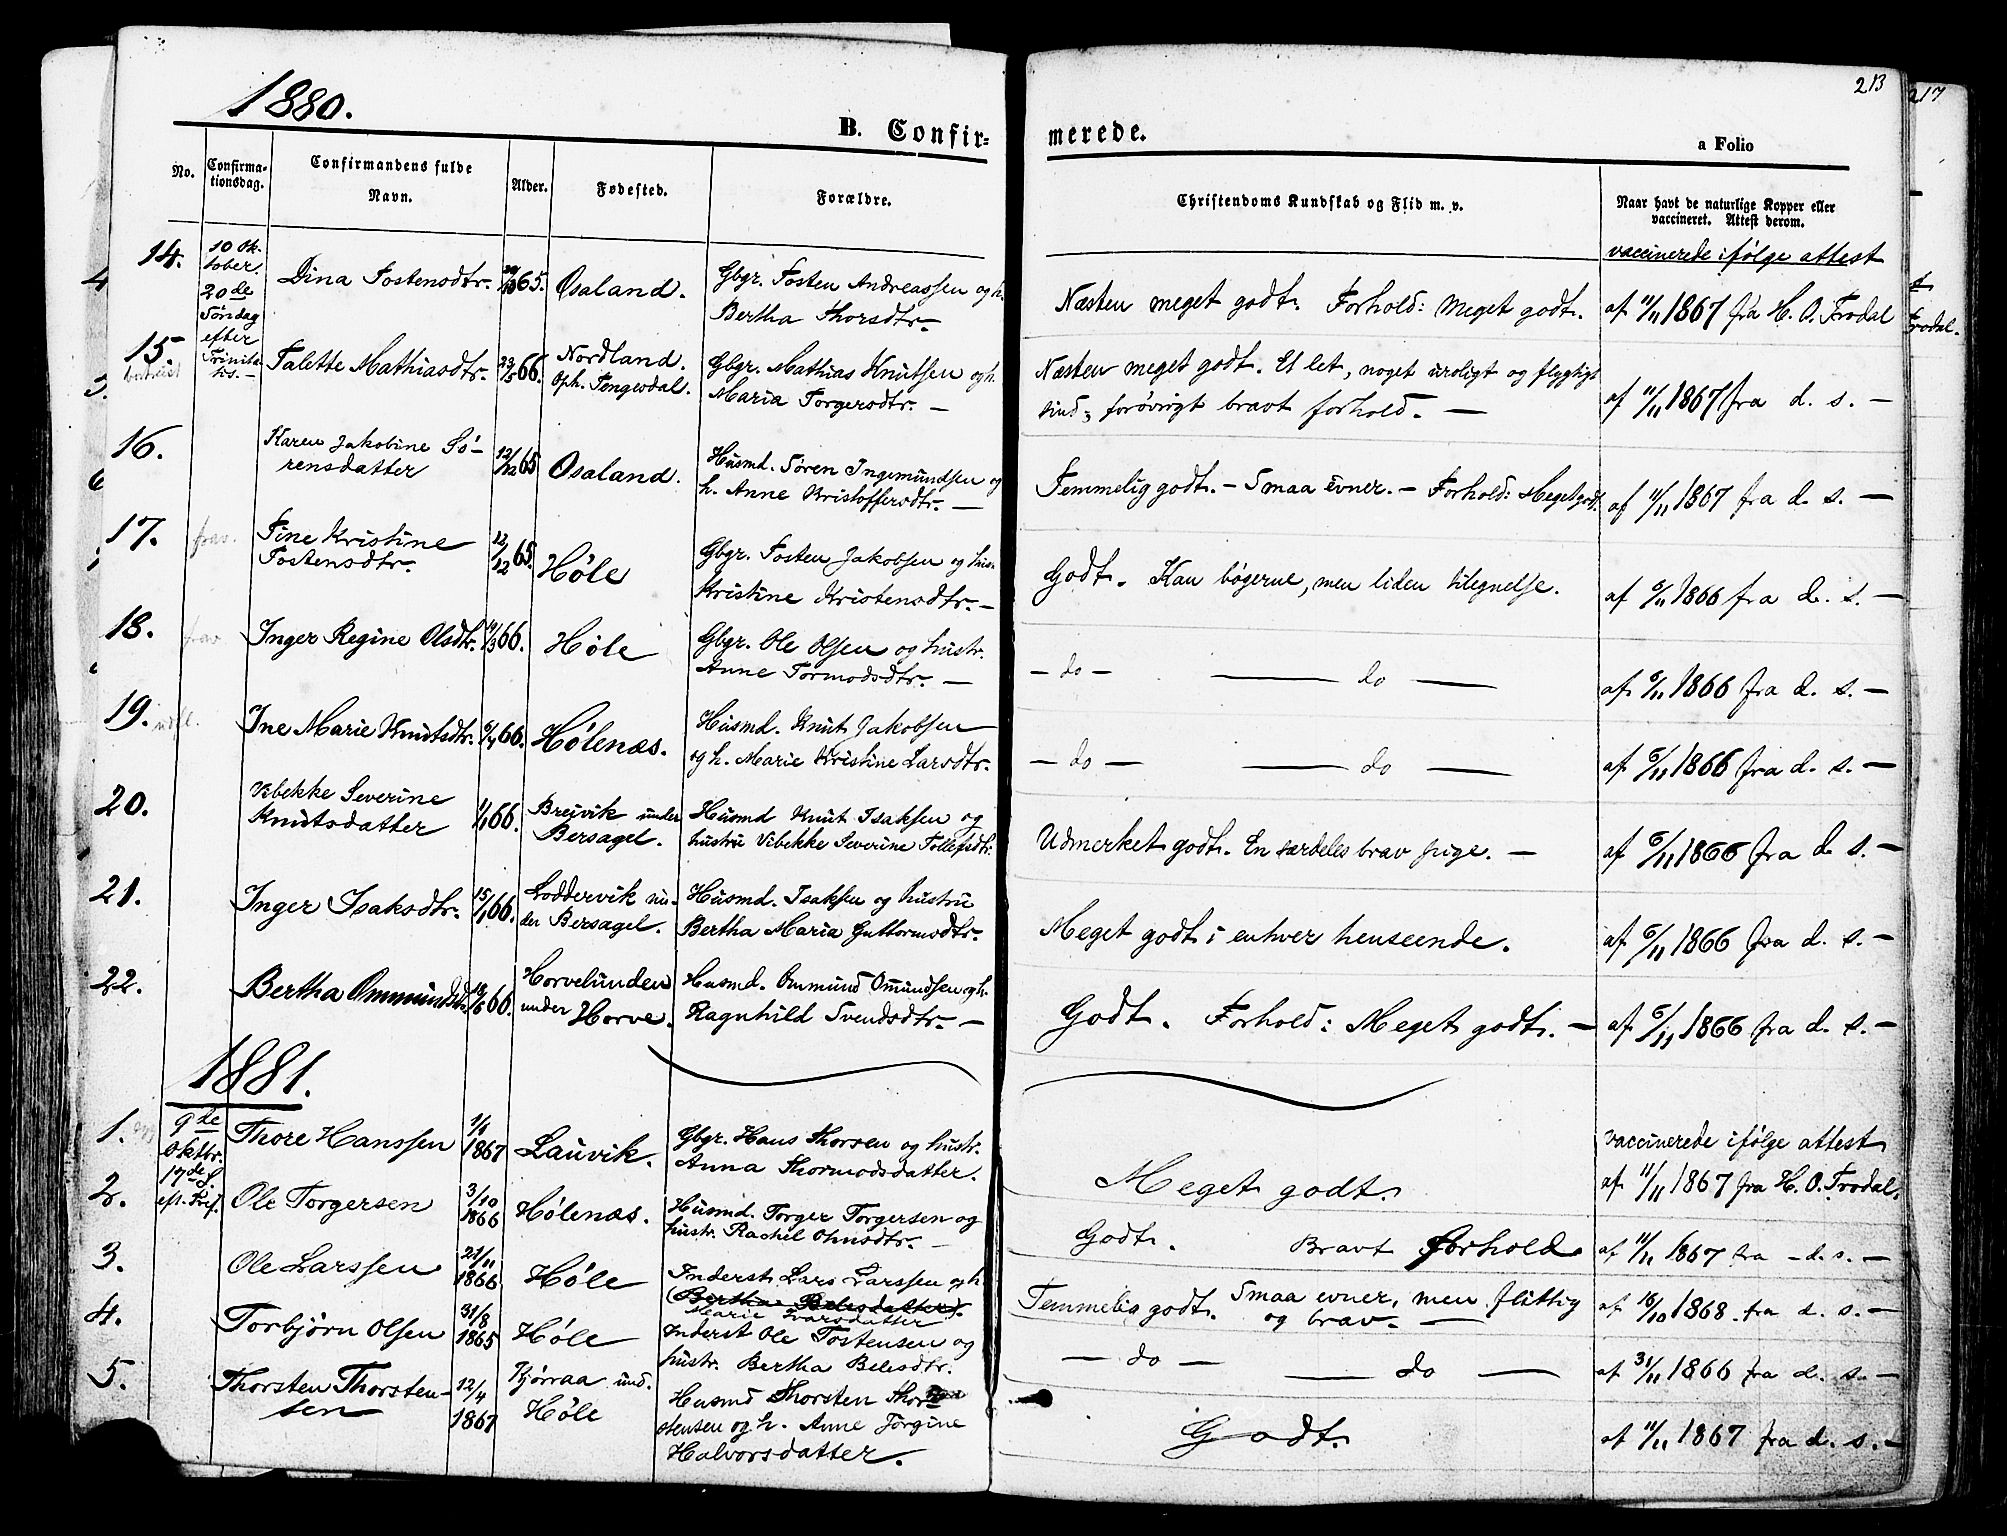 1880.
B. Confir=
merede.
213
217
a Folio
No.
Confirma-
tionsdag.
Confirmandens fulde
Navn.
Alder.
Fødested.
Forældre.
Christendoms Kundskab og Flid m. v.
Naar havt de naturlige Kopper eller
vaccineret. Attest derom.
vaccinerede ifølge attest
14.
10 Ok-
tober.
20de
Søndag
efter
Trinita-
tis.—
Dina Tostensdtr.
65.
Osaland.
Gbgr. Tosten Andreassen og h.
Bertha Thorsdtr.—
Næsten meget godt. Forhold: Meget godt.
af 11/11 1867 fra H. O. Frodal
15.
Talette Mathiasdtr.
23/5 66.
Nordland.
Oph. Tengesdal.
Gbgr. Mathias Knutsen og h.
Maria Torgersdtr. —
Næsten meget godt. Et let, noget uroligt og flygtigt
sind; forøvrigt bravt forhold. —
af 11/11 1867 fra d. s. —
16.
Karen Jakobine Sö-
rensdatter
12/12 65
Osaland.
Husmd. Søren Ingemundsen og
h. Anne Kristoffersdtr. —
Temmelig godt. — Smaa evner. — Forhold: Meget godt.
af 11/11 1867 fra d. s. —
17.
frav.
Tine Kristine
Tostensdtr.
12/12 65.
Høle
Gbgr. Tosten Jakobsen og hus.
Kristine Kristensdtr. —
Godt. Kan bøgerne, men liden tilegnelse.
af 6/11 1866 fra d. s. —
18.
frav
Inger Regine Olsdtr.
66.
Høle
Gbgr. Ole Olsen og hustr.
Anne Tormodsdtr. —
— do — — do —
af 6/11 1866 fra d. s. —
19.
Ine Marie Knutsdtr.
6/4 66.
Hølenæs.
Husmd. Knut Jakobsen
og h. Marie Kristine Larsdtr.
— do — — do —
af 6/11 1866 fra d. s. —
20.
Vibekke Severine
Knutsdatter
66.
Breivik under
Bersagel.
Husmd Knut Isaksen og
hustru Vibekke Severine Tollefsdtr.
Udmerket godt. En særdeles brav pige. —
af 6/11 1866 fra d. s. —
21.
Inger Isaksdtr.
15/1 66.
Loddervik un-
der Bersagel.
Husmd. Isaksen og hustru
Bertha Maria Guttormsdtr.
Meget godt i enhver henseende.
af 6/11 1866 fra d. s. —
22.
Bertha Ommundsdtr
66.
Horvelunden
under Horve.
Husmd. Ommund Omundsen og h.
Ragnhild Svendsdtr. —
Godt. Forhold: Meget godt. —
af 6/11 1866 fra d. s. —
1881.
vaccinerede ifølge attest
1.
9de
Oktbr.
17de S.
eft. Tref.
Thore Hanssen
1867
Lauvik.
Gbgr. Hans Thorsen og hustr.
Anna Thormodsdatter.
Meget godt.
af 11/11 1867 fra H. O. Frodal.
2.
Ole Torgersen
3/10
1866
Hølenæs.
Husmd. Torger Torgersen og
hustr. Rachel Ohnsdtr. —
Godt. Bravt forhold
af 11/11 1867 fra — d. s. —
3.
Ole Larssen
21/11
1866
Høle
Inderst Lars Larssen og h.
(Bertha Belesdatter).
Marie Ivarsdatter
Temmelig godt. Smaa evner, men flittig
og brav. —
af 16/10 1868 fra d. s. —
4.
Torbjørn Olsen
31/8
1865
Høle
Inderst Ole Tostensen og
hustr. Bertha Belesdtr.
— do — — do —
af 31/11 1866 fra d. s. —
5.
Thorsten Thorsten-
sen
12/4
1867
Kjørraa und.
Høle
Husmd Thorsten Thor
stensen og h. Anne Jørgine
Halvorsdatter.
Godt.
af 11/11 1867 fra d. s. —